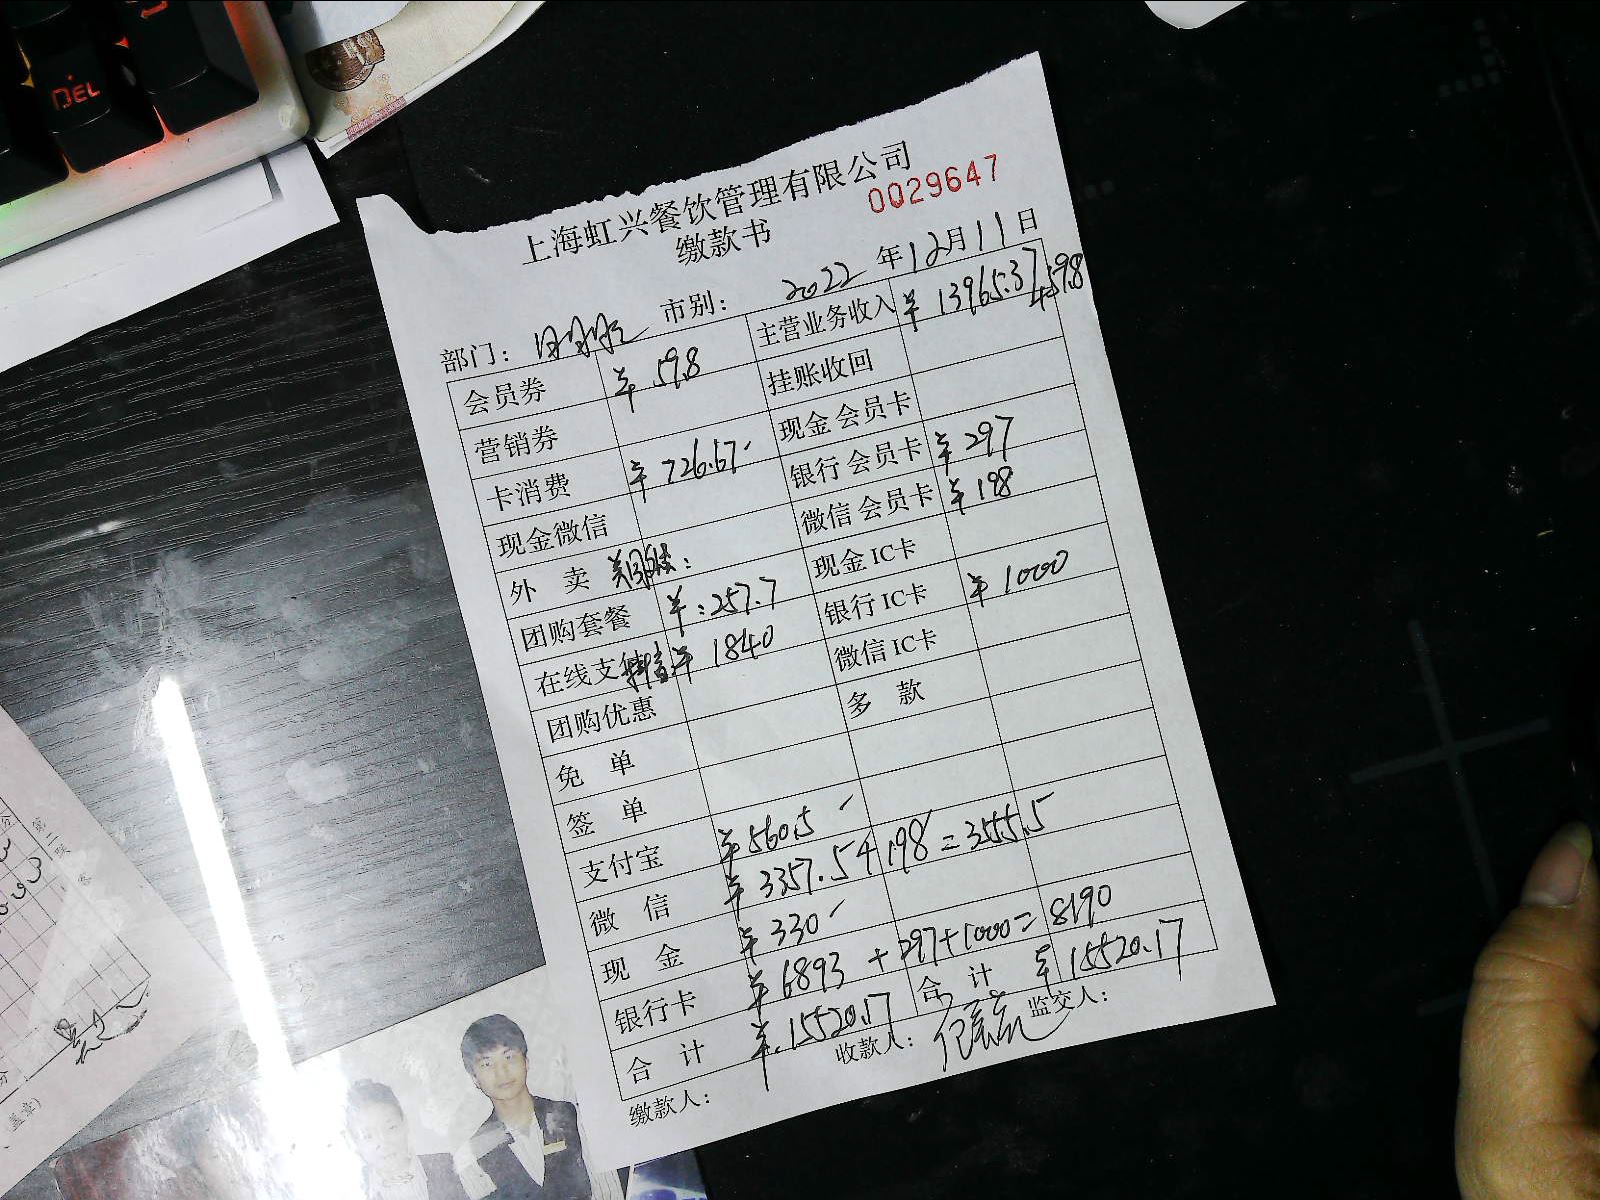 DEL
上海虹兴餐饮管理有限公司
0029647
缴款书
部门： 市别： 2022 年 12月 11 日
会员券 ¥ 59.8 主营业务收入 ¥ 13965.37 +59.8
营销券 挂账收回
卡消费 ¥ 726.67 现金 会员卡
现金微信 银行 会员卡 ¥ 297
外 卖 微信 会员卡 ¥ 198
团购套餐 ¥：257.7 现金 IC卡
在线支付 抖音 ¥ 1840 银行 IC卡 ¥ 1000
团购优惠 微信 IC卡
免 单 多 款
签 单
支付宝 ¥ 560.5
微 信 ¥ 3357.5+198 = 3555.5
现 金 ¥ 330
银行卡 ¥ 6893 + 297+1000= 8190
合 计 ¥ 15520.17 合 计 ¥ 15520.17
缴款人： 收款人： 监交人：
第二联